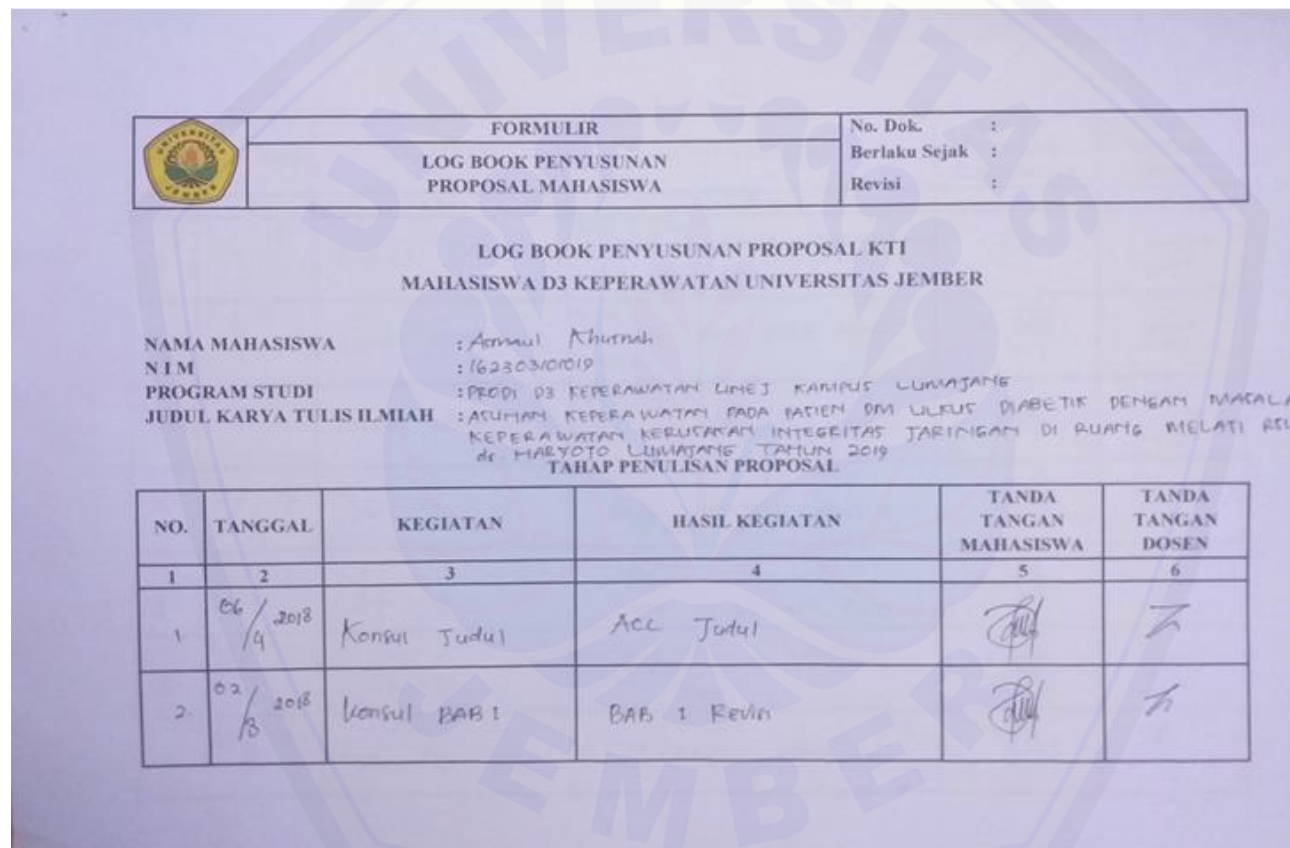 UNIVERSITAS
JEMBER
FORMULIR
LOG BOOK PENYUSUNAN
PROPOSAL MAHASISWA
No. Dok. :
Berlaku Sejak :
Revisi :
LOG BOOK PENYUSUNAN PROPOSAL KTI
MAHASISWA D3 KEPERAWATAN UNIVERSITAS JEMBER
NAMA MAHASISWA : Asmaul Khusnah
NIM : 162303101019
PROGRAM STUDI : PRODI D3 KEPERAWATAN UNEJ KAMPUS LUMAJANG
JUDUL KARYA TULIS ILMIAH : ASUHAN KEPERAWATAN PADA PASIEN DM ULKUS DIABETIK DENGAN MASALA
KEPERAWATAN KERUSAKAN INTEGRITAS JARINGAN DI RUANG MELATI RSU
dr HARYOTO LUMAJANG TAHUN 2019
TAHAP PENULISAN PROPOSAL
NO. TANGGAL KEGIATAN HASIL KEGIATAN TANDA TANGAN MAHASISWA TANDA TANGAN DOSEN
1 2 3 4 5 6
1 06/4 2018 Konsul Judul Acc Judul
2. 02/8 2018 Konsul BAB 1 BAB 1 Revisi